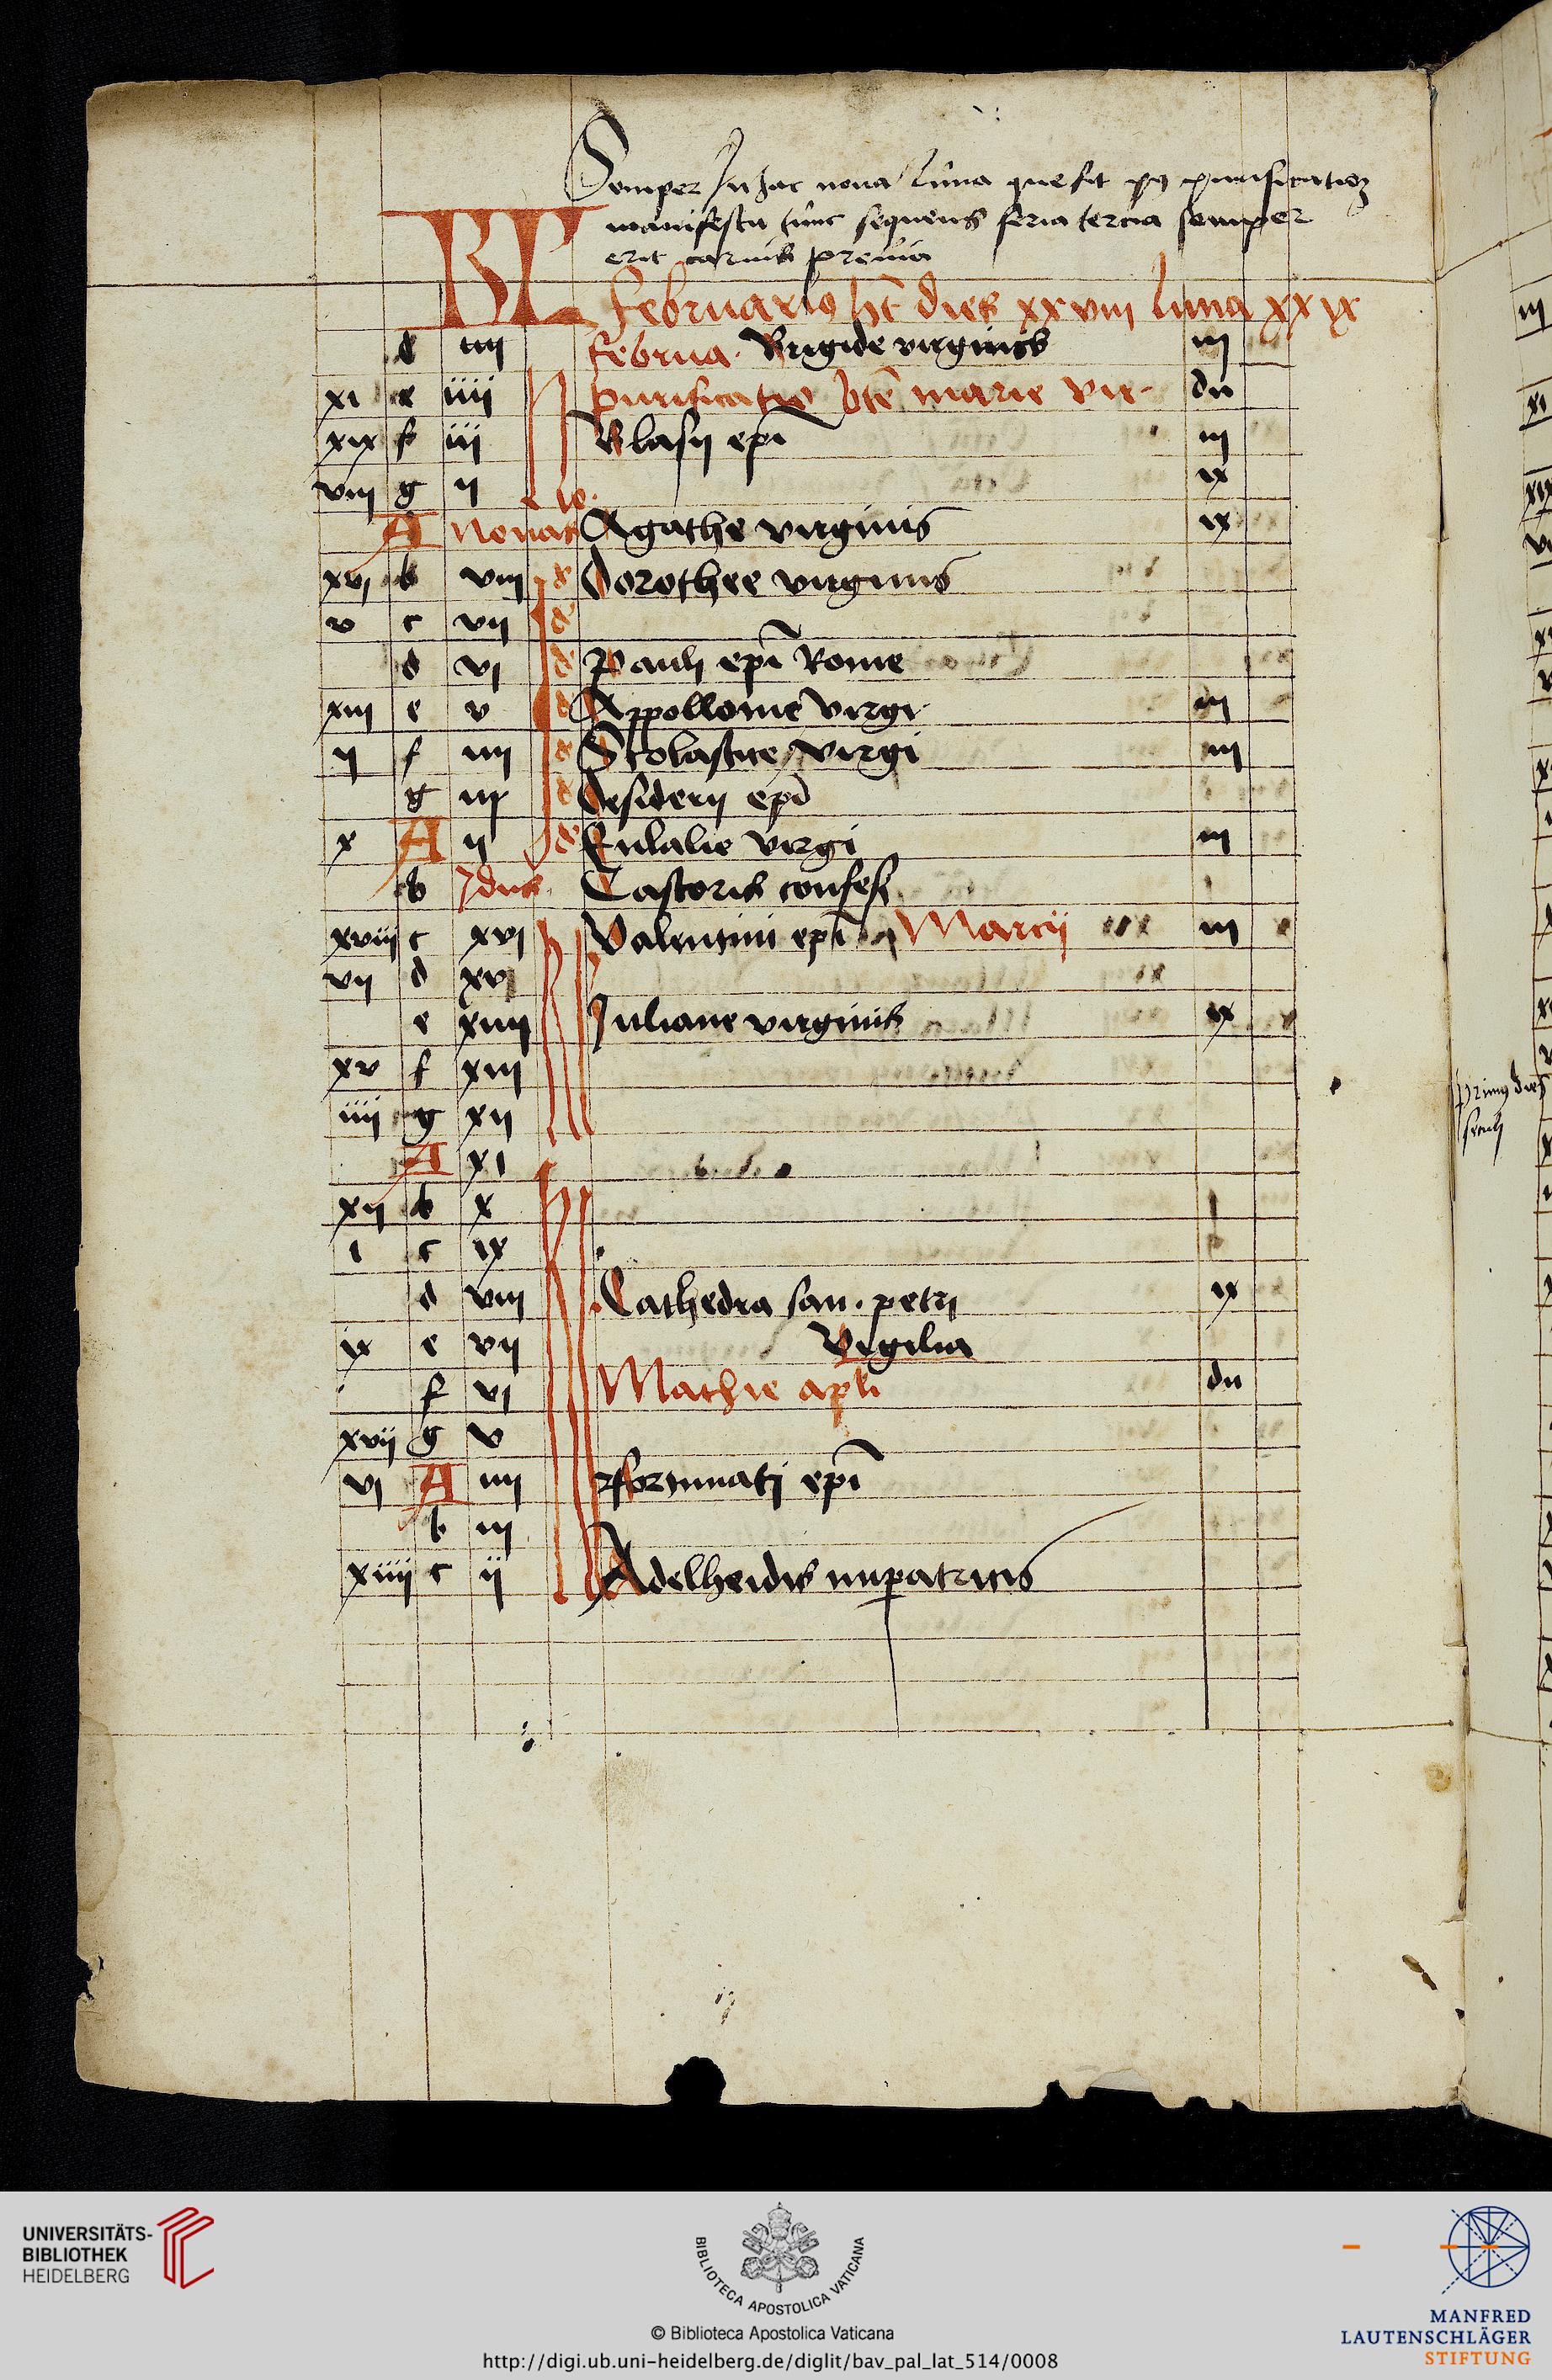 Semper In hac nova luna que fit pꝰ purificatioꝫ
manifesta tunc sequens feria tercia semper
erit carnis previa
KL februariꝰ ht̄ dies xxviii luna xxix
d iiii februa. Brigide virginis iii
xi e iiii N purificatio bt̄e marie vir. du
xix f iii Blasii ep̄i iii
viii g ii ix
A Nonas Agathe virginis ix
xvi b viii Dorothee virginis
v c vii
d vi Pauli ep̄i Rome
xiii e v Appollonie virgi iii
ii f iiii Scolastice virgi iii
g iii desiderii ep̄i
x A ii Eulalie virgi iii
b Idus Castoris confess
xviii c xvi Valentini ep̄i Marcii iii
vii d xv
e xiiii Juliane virginis ix
xv f xiii
iiii g xii
A xi
xii b x
i c ix
d viii Cathedra san. petri ix
ix e vii Vigilia
f vi Mathie ap̄li du
xvii g v
vi A iiii fortunati ep̄i
b iii
xiiii c ii Adelheidis imꝑatricis
primꝰ dies
UNIVERSITÄTS-
BIBLIOTHEK
HEIDELBERG
BIBLIOTECA APOSTOLICA VATICANA
© Biblioteca Apostolica Vaticana
http://digi.ub.uni-heidelberg.de/diglit/bav_pal_lat_514/0008
MANFRED
LAUTENSCHLÄGER
STIFTUNG